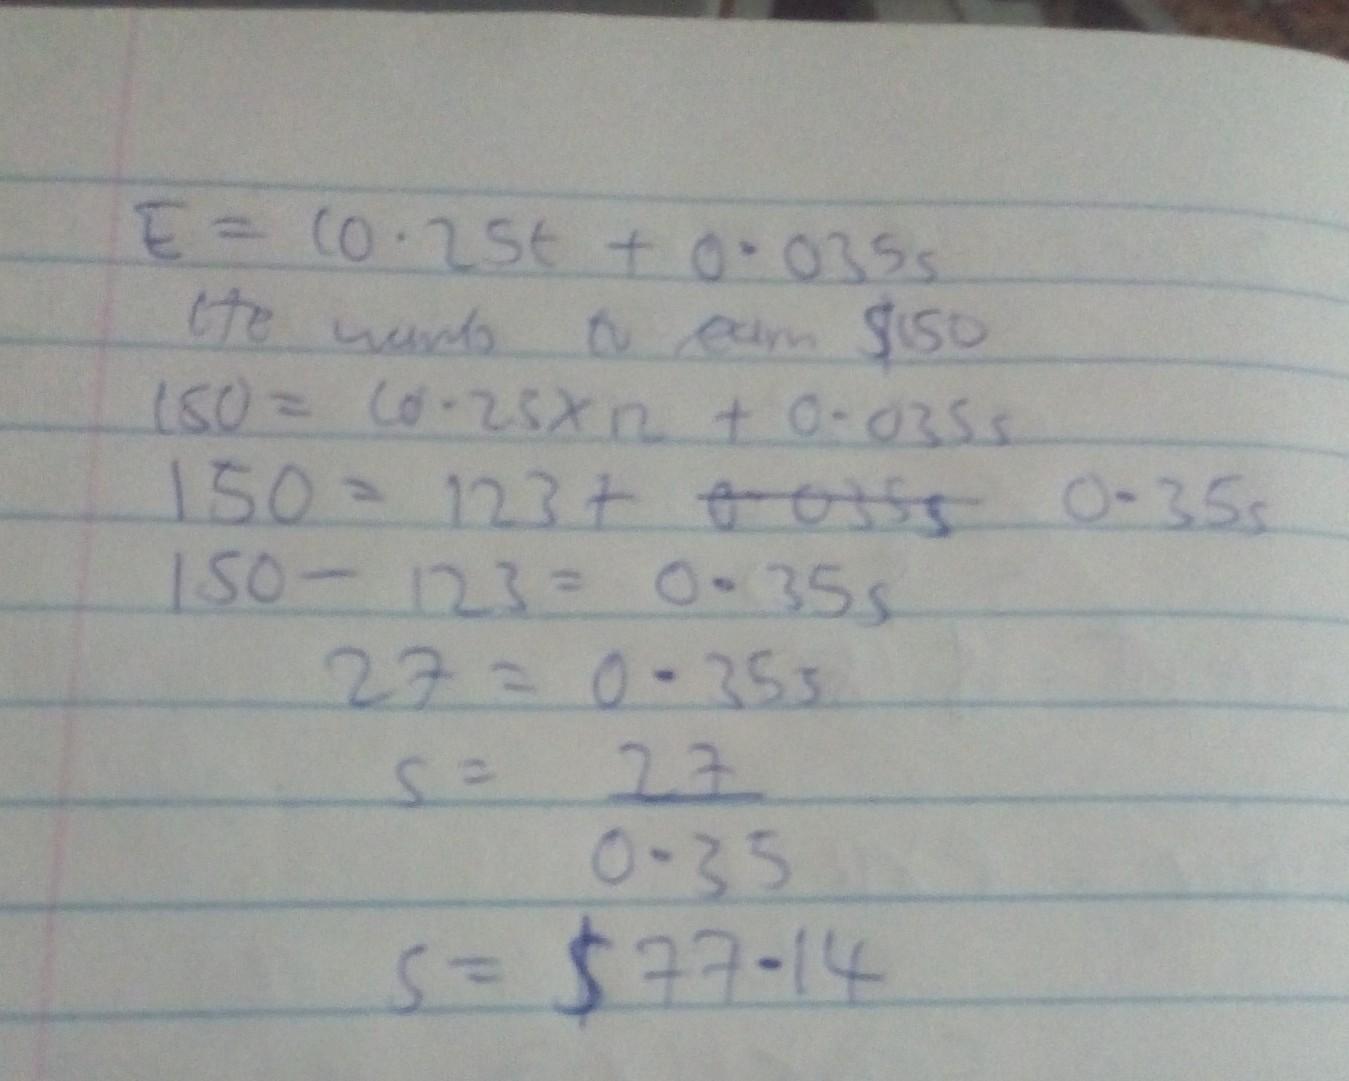 E = 10.25t + 0.035s
He wants to earn $150
150 = 10.25 x 12 + 0.035s
150 = 123 + 0.035s 0.35s
150 - 123 = 0.35s
27 = 0.35s
s = 27
0.35
s = $77.14